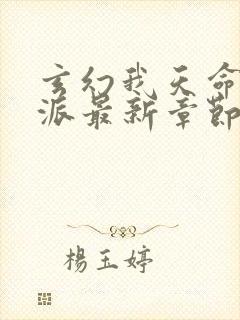 玄幻我天命
派最新章節
楊玉婷